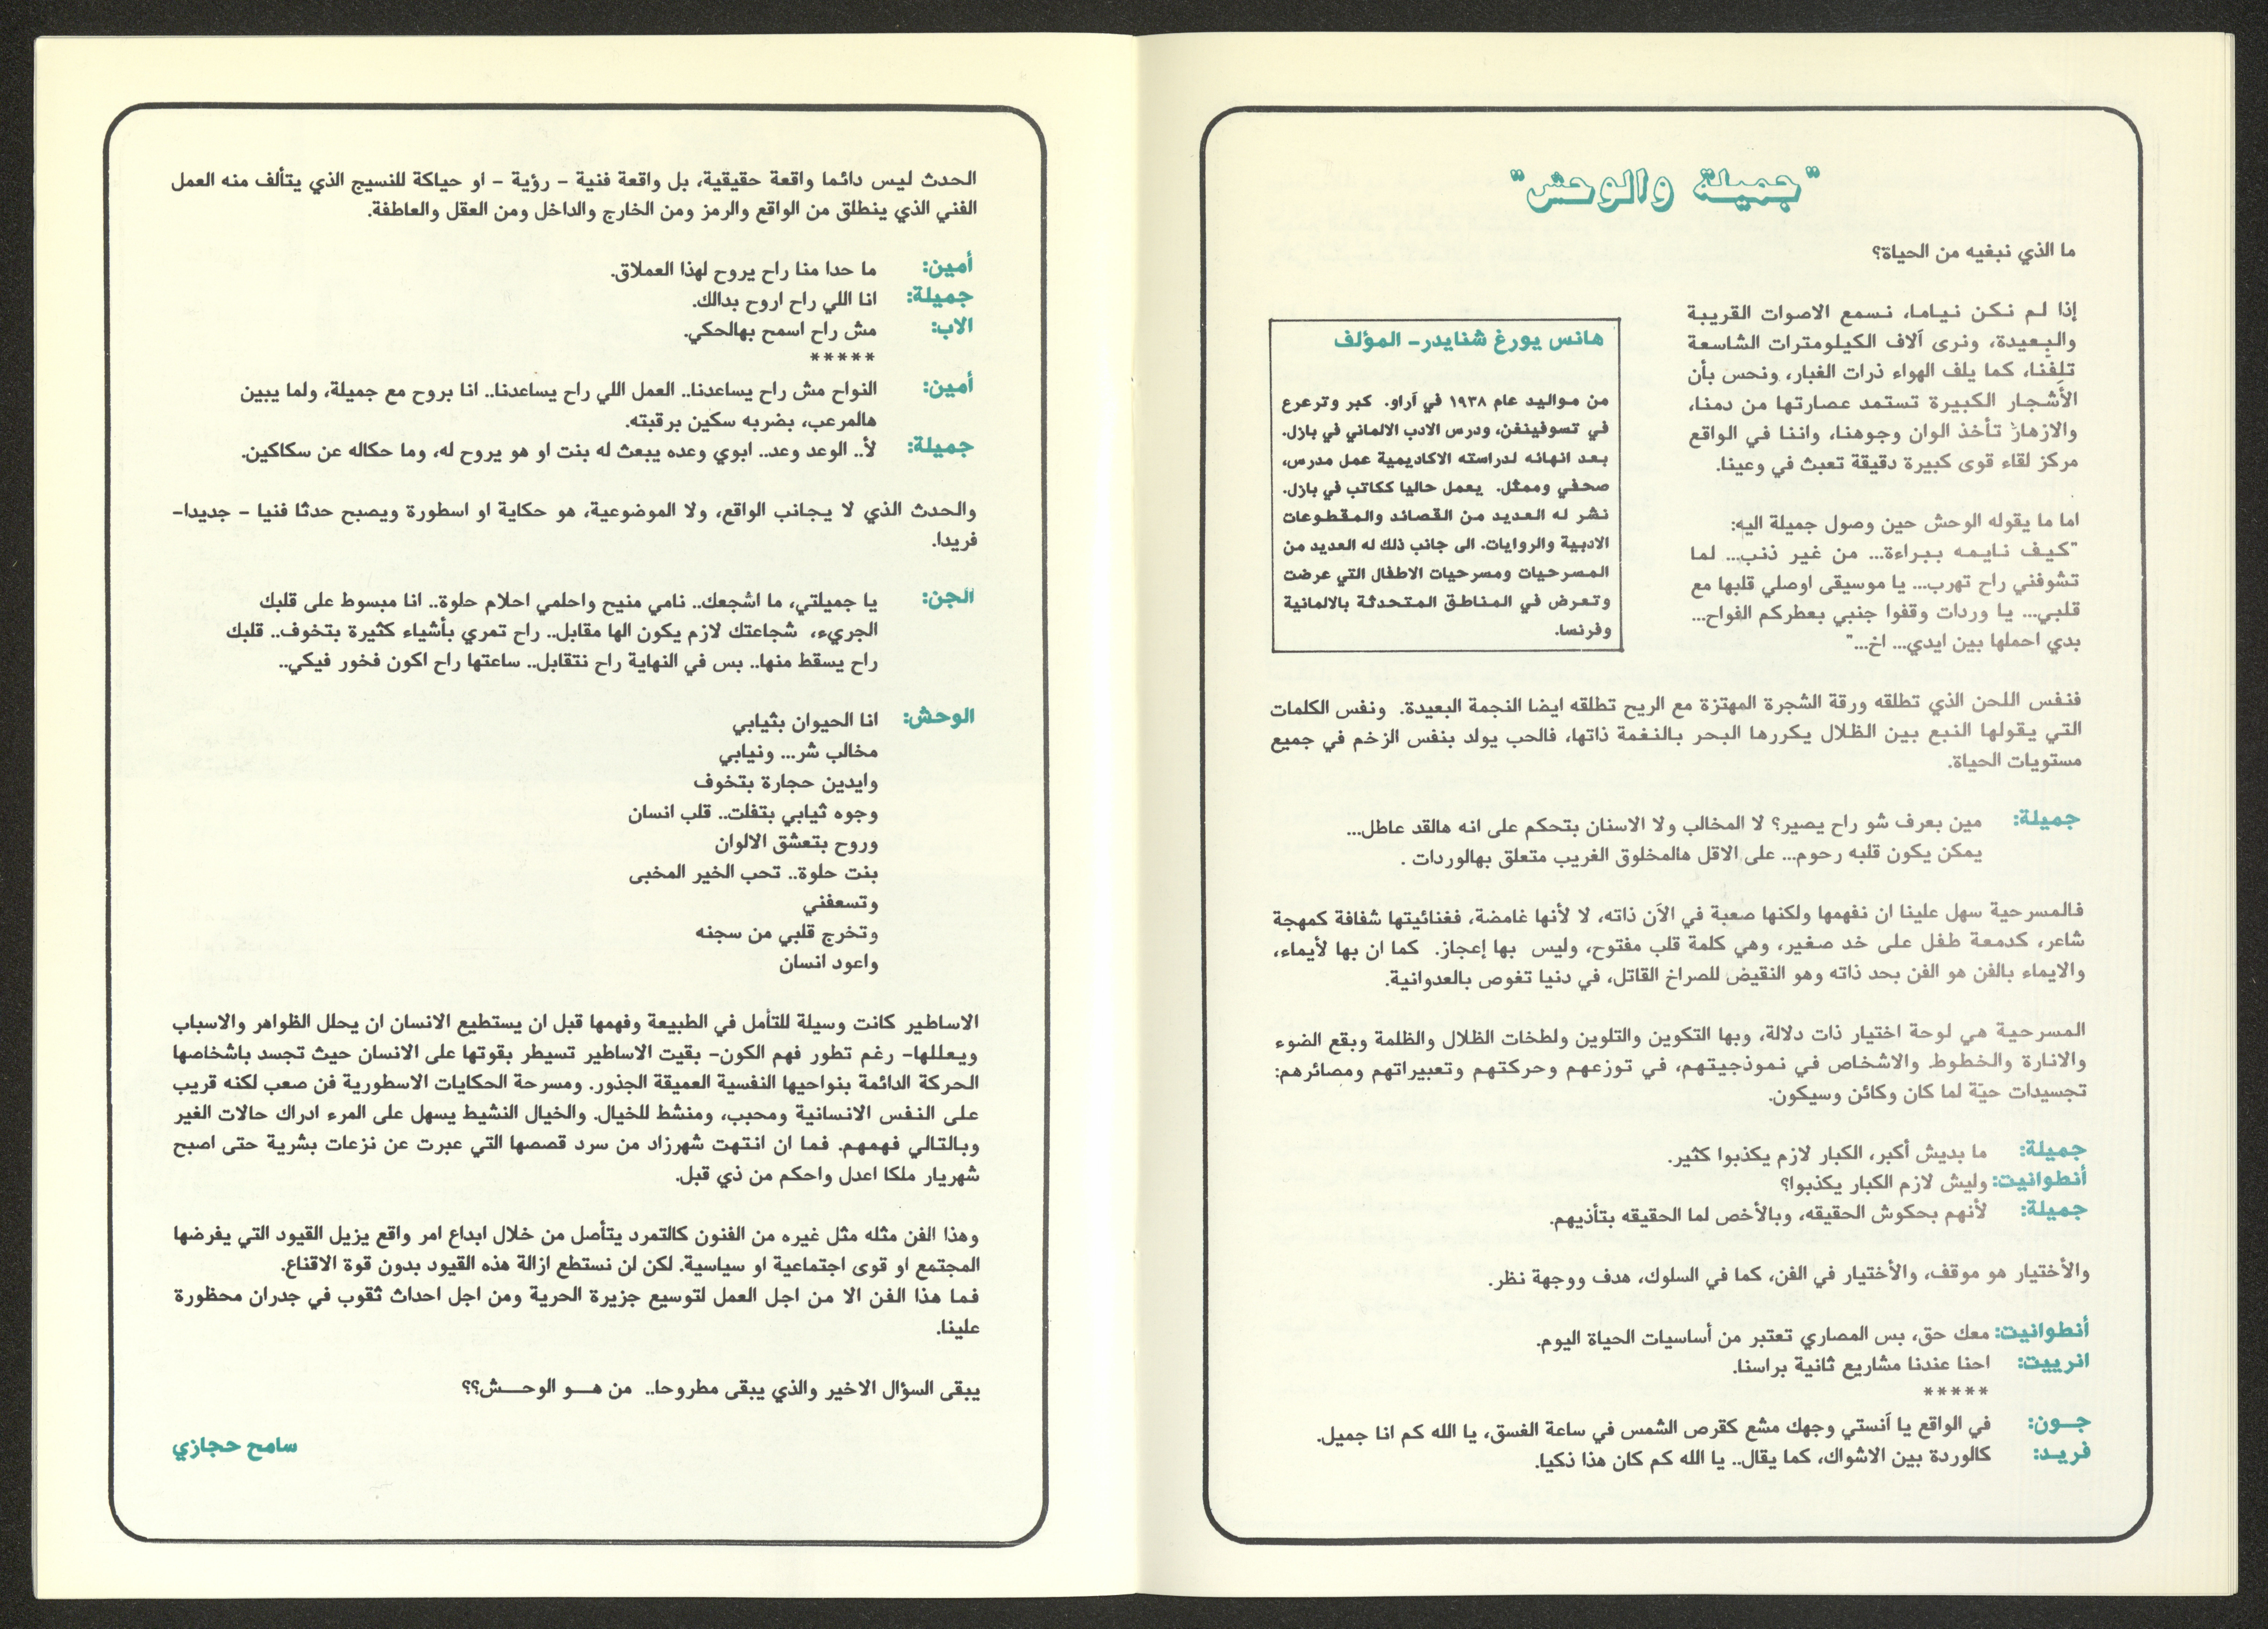 "جميلة والوحش"
ما الذي نبغيه من الحياة؟
إذا لم نكن نياما، نسمع الاصوات القريبة
والبعيدة، ونرى آلاف الكيلومترات الشاسعة
تلفنا، كما يلف الهواء ذرات الغبار، ونحس بأن
الأشجار الكبيرة تستمد عصارتها من دمنا،
والازهار تأخذ الوان وجوهنا، واننا في الواقع
مركز لقاء قوى كبيرة دقيقة تعبث في وعينا.
اما ما يقوله الوحش حين وصول جميلة اليه:
"كيف نايمه ببراءة... من غير ذنب... لما
تشوفني راح تهرب... يا موسيقى اوصلي قلبها مع
قلبي... يا وردات وقفوا جنبي بعطركم الفواح...
بدي احملها بين ايدي... اخ..."
هانس يورغ شنايدر- المؤلف
من مواليد عام ١٩٣٨ في آراو. كبر وترعرع
في تسوفينغن، ودرس الادب الالماني في بازل.
بعد انهائه لدراسته الاكاديمية عمل مدرس،
صحفي وممثل. يعمل حاليا ككاتب في بازل.
نشر له العديد من القصائد والمقطوعات
الادبية والروايات. الى جانب ذلك له العديد من
المسرحيات ومسرحيات الاطفال التي عرضت
وتعرض في المناطق المتحدثة بالالمانية
وفرنسا.
فنفس اللحن الذي تطلقه ورقة الشجرة المهتزة مع الريح تطلقه ايضا النجمة البعيدة. ونفس الكلمات
التي يقولها النبع بين الظلال يكررها البحر بالنغمة ذاتها، فالحب يولد بنفس الزخم في جميع
مستويات الحياة.
جميلة: مين بعرف شو راح يصير؟ لا المخالب ولا الاسنان بتحكم على انه هالقد عاطل...
يمكن يكون قلبه رحوم... على الاقل هالمخلوق الغريب متعلق بهالوردات .
فالمسرحية سهل علينا ان نفهمها ولكنها صعبة في الآن ذاته، لا لأنها غامضة، فغنائيتها شفافة كمهجة
شاعر، كدمعة طفل على خد صغير، وهي كلمة قلب مفتوح، وليس بها إعجاز. كما ان بها لأيماء،
والايماء بالفن هو الفن بحد ذاته وهو النقيض للصراخ القاتل، في دنيا تغوص بالعدوانية.
المسرحية هي لوحة اختيار ذات دلالة، وبها التكوين والتلوين ولطخات الظلال والظلمة وبقع الضوء
والانارة والخطوط والاشخاص في نموذجيتهم، في توزعهم وحركتهم وتعبيراتهم ومصائرهم:
تجسيدات حيّة لما كان وكائن وسيكون.
جميلة: ما بديش أكبر، الكبار لازم يكذبوا كثير.
أنطوانيت: وليش لازم الكبار يكذبوا؟
جميلة: لأنهم بحكوش الحقيقه، وبالأخص لما الحقيقه بتأذيهم.
والأختيار هو موقف، والأختيار في الفن، كما في السلوك، هدف ووجهة نظر.
أنطوانيت: معك حق، بس المصاري تعتبر من أساسيات الحياة اليوم.
انرييت: احنا عندنا مشاريع ثانية براسنا.
*****
جـون: في الواقع يا آنستي وجهك مشع كقرص الشمس في ساعة الغسق، يا الله كم انا جميل.
فريـد: كالوردة بين الاشواك، كما يقال.. يا الله كم كان هذا ذكيا.
الحدث ليس دائما واقعة حقيقية، بل واقعة فنية - رؤية - او حياكة للنسيج الذي يتألف منه العمل
الفني الذي ينطلق من الواقع والرمز ومن الخارج والداخل ومن العقل والعاطفة.
أمين: ما حدا منا راح يروح لهذا العملاق.
جميلة: انا اللي راح اروح بدالك.
الاب: مش راح اسمح بهالحكي.
*****
أمين: النواح مش راح يساعدنا.. العمل اللي راح يساعدنا.. انا بروح مع جميلة، ولما يبين
هالمرعب، بضربه سكين برقبته.
جميلة: لأ.. الوعد وعد.. ابوي وعده يبعث له بنت او هو يروح له، وما حكاله عن سكاكين.
والحدث الذي لا يجانب الواقع، ولا الموضوعية، هو حكاية او اسطورة ويصبح حدثا فنيا - جديدا-
فريدا.
الجن: يا جميلتي، ما اشجعك.. نامي منيح واحلمي احلام حلوة.. انا مبسوط على قلبك
الجريء، شجاعتك لازم يكون الها مقابل.. راح تمري بأشياء كثيرة بتخوف.. قلبك
راح يسقط منها.. بس في النهاية راح نتقابل.. ساعتها راح اكون فخور فيكي..
الوحش: انا الحيوان بثيابي
مخالب شر... ونيابي
وايدين حجارة بتخوف
وجوه ثيابي بتفلت.. قلب انسان
وروح بتعشق الالوان
بنت حلوة.. تحب الخير المخبى
وتسعفني
وتخرج قلبي من سجنه
واعود انسان
الاساطير كانت وسيلة للتأمل في الطبيعة وفهمها قبل ان يستطيع الانسان ان يحلل الظواهر والاسباب
ويعللها- رغم تطور فهم الكون- بقيت الاساطير تسيطر بقوتها على الانسان حيث تجسد باشخاصها
الحركة الدائمة بنواحيها النفسية العميقة الجذور. ومسرحة الحكايات الاسطورية فن صعب لكنه قريب
على النفس الانسانية ومحبب، ومنشط للخيال. والخيال النشيط يسهل على المرء ادراك حالات الغير
وبالتالي فهمهم. فما ان انتهت شهرزاد من سرد قصصها التي عبرت عن نزعات بشرية حتى اصبح
شهريار ملكا اعدل واحكم من ذي قبل.
وهذا الفن مثله مثل غيره من الفنون كالتمرد يتأصل من خلال ابداع امر واقع يزيل القيود التي يفرضها
المجتمع او قوى اجتماعية او سياسية. لكن لن نستطع ازالة هذه القيود بدون قوة الاقناع.
فما هذا الفن الا من اجل العمل لتوسيع جزيرة الحرية ومن اجل احداث ثقوب في جدران محظورة
علينا.
يبقى السؤال الاخير والذي يبقى مطروحا.. من هــو الوحــش؟؟
سامح حجازي